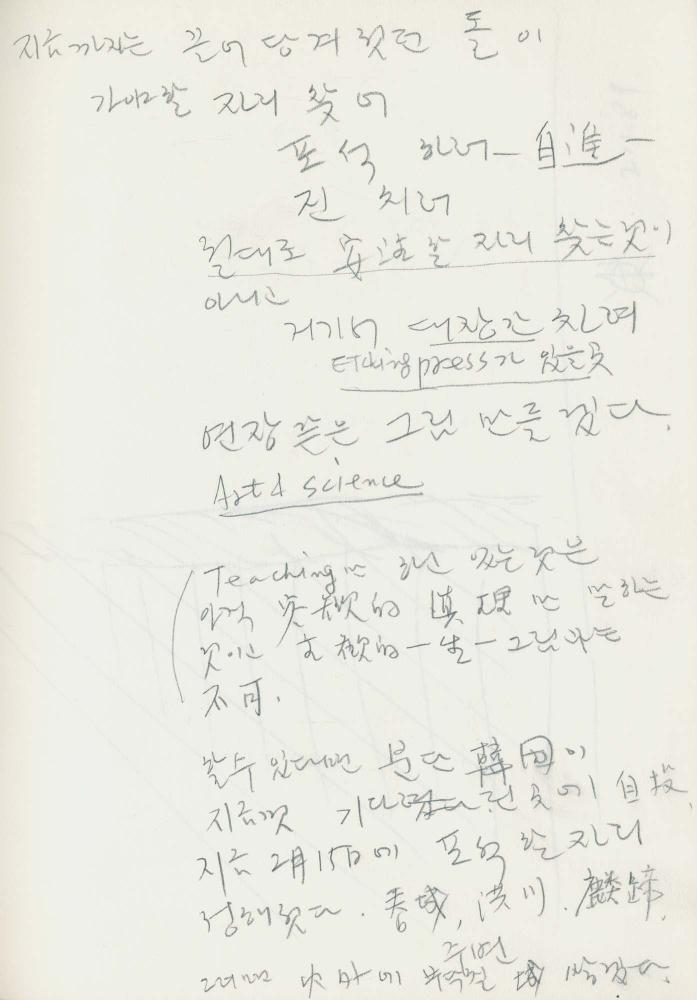 지금까지는 끌어 당겨 졌던 돌이
가야 할 자리 찾어
포석 하러 — 自進 —
진 치러
절대로 安住할 자리 찾는것이
아니고
거기서 대장간 차려
Etching press가 있을곳
연장 같은 그림 만들 겠다.
Art & science
(Teaching만 하고 있는 것은
아직 客觀的 眞理만 말하는
것이고 主觀的 一生 — 그림과는
不可.
할 수 있다면 분단 韓国이
지금껏 기다렸던 곳에 自投,
지금 2月15日에 포석할 자리
정해졌다. 春城, 洪川, 麒麟
그러면 밖에 주변